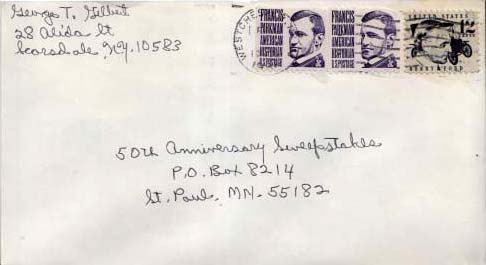 George T. Gilbert
28 Alida St
Scarsdale, NY. 10583
WESTCHE
FRANCIS
PARKMAN
AMERICAN
HISTORIAN
FRANCIS
PARKMAN
AMERICAN
HISTORIAN
UNITED STATES
12
HENRY FORD
50th Anniversary Sweepstakes
P.O. Box 8214
St. Paul, MN. 55182